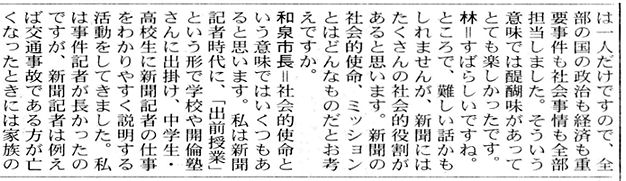 は一人だけですので、全
部の国の政治も経済も重
要事件も社会事情も全部
担当しました。そういう
意味では醍醐味があって
とても楽しかったです。
林＝すばらしいですね。
ところで、難しい話かも
しれませんが、新聞には
たくさんの社会的役割が
あると思います。新聞の
社会的使命、ミッション
とはどんなものだとお考
えですか。
和泉市長＝社会的使命と
いう意味ではいくつもあ
ると思います。私は新聞
記者時代に、「出前授業」
という形で学校や開倫塾
さんに出掛け、中学生・
高校生に新聞記者の仕事
をわかりやすく説明する
活動をしてきました。私
は事件記者が長かったの
ですが、新聞記者は例え
ば交通事故である方が亡
くなったときには家族の